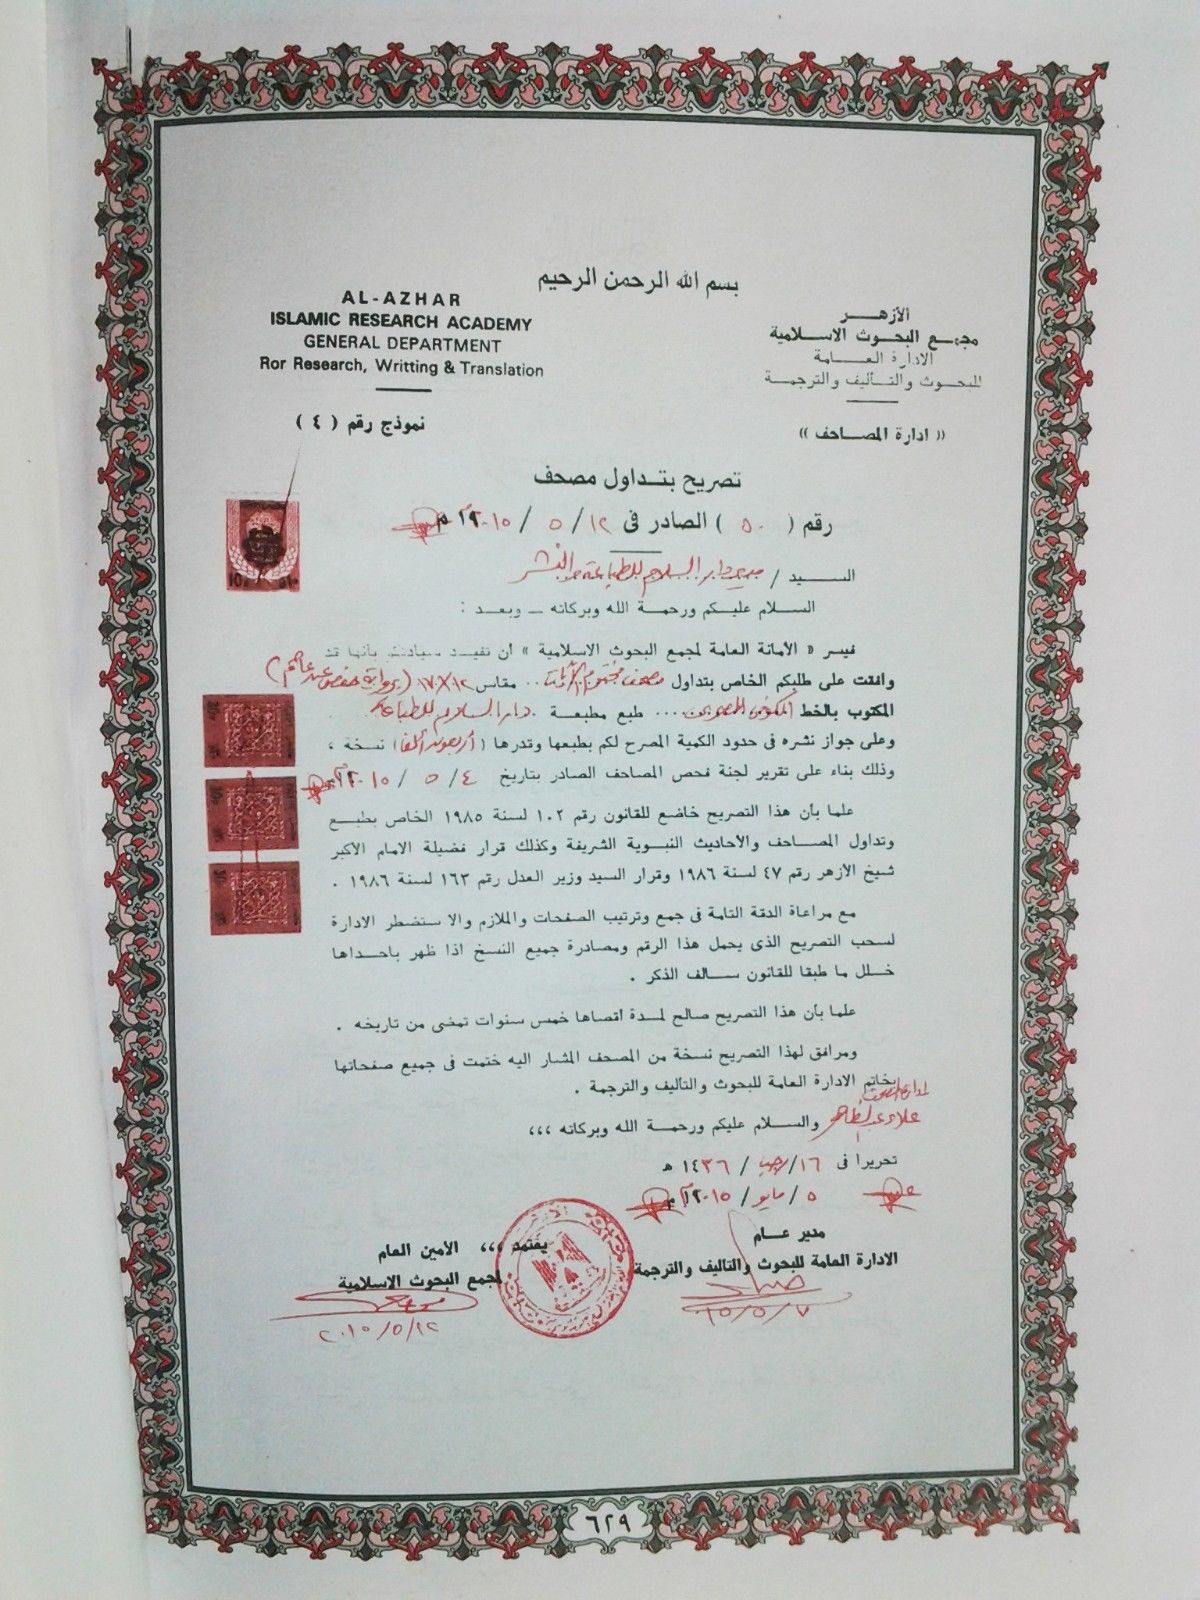 بسم الله الرحمن الرحيم
AL-AZHAR
ISLAMIC RESEARCH ACADEMY
GENERAL DEPARTMENT
Ror Research, Writting & Translation
نموذج رقم ( ٤ )
الأزهر
مجمع البحوث الاسلامية
الادارة العامة
للبحوث والتأليف والترجمة
« ادارة المصاحف »
تصريح بتداول مصحف
رقم ( ٥٠ ) الصادر فى ١٢ / ٥ / ٢٠١٥ م
السيد / مدير دار السلام للطباعة والنشر
السلام عليكم ورحمة الله وبركاته – وبعد :
فيسر « الأمانة العامة لمجمع البحوث الاسلامية » أن تفيد سيادتكم بأنها قد
وافقت على طلبكم الخاص بتداول مصحف .. مقاس ١٢×١٧ (برواية حفص عن عاصم)
المكتوب بالخط .... طبع مطبعة . دار السلام للطباعة
وعلى جواز نشره فى حدود الكمية المصرح لكم بطبعها وقدرها ( أربعون ألفا ) نسخة ،
وذلك بناء على تقرير لجنة فحص المصاحف الصادر بتاريخ ٤ / ٥ / ٢٠١٥ م
علما بأن هذا التصريح خاضع للقانون رقم ١٠٢ لسنة ١٩٨٥ الخاص بطبع
وتداول المصاحف والأحاديث النبوية الشريفة وكذلك قرار فضيلة الامام الأكبر
شيخ الأزهر رقم ٤٧ لسنة ١٩٨٦ وقرار السيد وزير العدل رقم ١٦٣ لسنة ١٩٨٦ .
مع مراعاة الدقة التامة فى جمع وترتيب الصفحات والملازم والا ستضطر الادارة
لسحب التصريح الذى يحمل هذا الرقم ومصادرة جميع النسخ اذا ظهر باحداها
خلل ما طبقا للقانون سالف الذكر .
علما بأن هذا التصريح صالح لمدة أقصاها خمس سنوات تمضى من تاريخه .
ومرافق لهذا التصريح نسخة من المصحف المشار اليه ختمت فى جميع صفحاتها
بخاتم الادارة العامة للبحوث والتأليف والترجمة .
والسلام عليكم ورحمة الله وبركاته ،،،
تحريرا فى ١٦ / رجب / ١٤٣٦ هـ
٥ / مايو / ٢٠١٥ م
مدير عام
الادارة العامة للبحوث والتأليف والترجمة
٢٠١٥/٥/٧
يعتمد ،،، الأمين العام
لمجمع البحوث الاسلامية
٢٠١٥/٥/١٢
٦٢٩